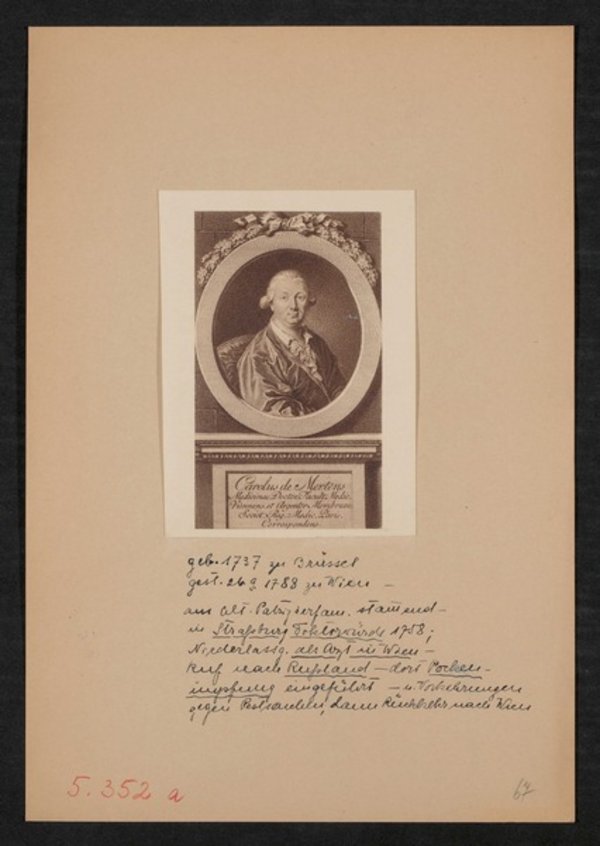 Carolus de Mertens
Medicinae Doctor, Facult. Medic.
Viennens. et Argentor. Membrum,
Societ. Reg. Medic. Paris.
Correspondens.
geb. 1737 zu Brüssel
gest. 1788 zu Wien –
aus Alt. Patrizierfam. stammend –
in Straßburg Doktorwürde 1758;
Niederlassg. als Arzt in Wien –
Ruf nach Rußland – dort Pocken-
impfung eingeführt – u. Vorkehrungen
gegen dann Rückkehr nach Wien
5.352 a
67